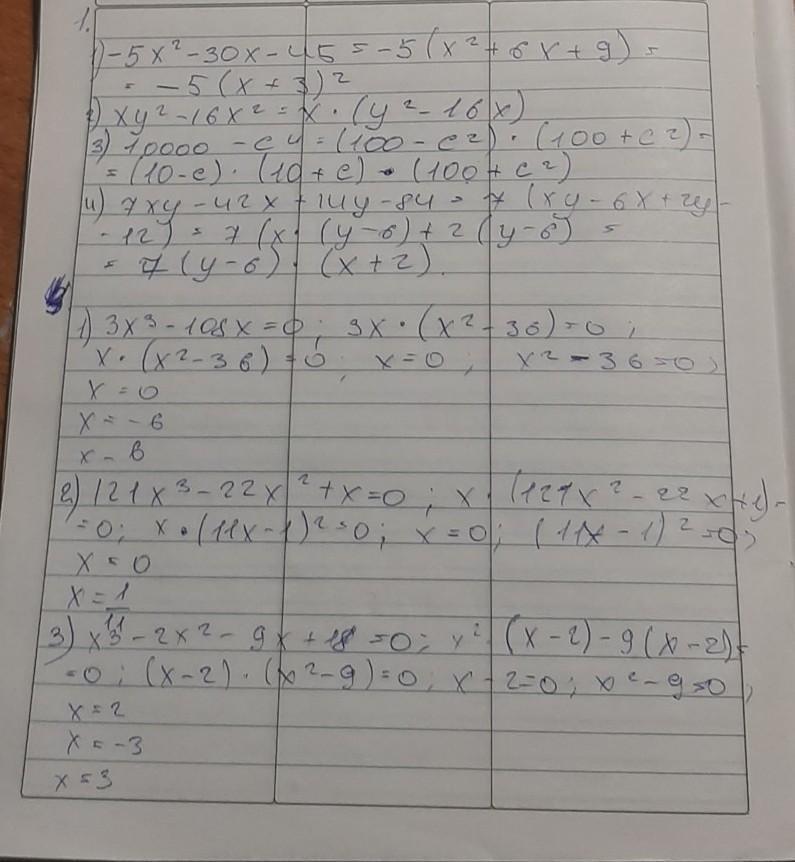 1.
1) -5x² - 30x - 45 = -5(x² + 6x + 9) =
= -5(x + 3)²
2) xy² - 16x² = x · (y² - 16x)
3) 10000 - c4 = (100 - c²) · (100 + c²) =
= (10 - c) · (10 + c) · (100 + c²)
4) 7xy - 42x + 14y - 84 = 7 (xy - 6x + 2y -
- 12) = 7 (x · (y - 6) + 2 (y - 6) =
= 7 (y - 6) · (x + 2).
1) 3x³ - 108x = 0 ; 3x · (x² - 36) = 0 ;
x · (x² - 36) = 0 ; x = 0 ; x² - 36 = 0 ;
x = 0
x = -6
x - 6
2) 121x³ - 22x² + x = 0 ; x · (121x² - 22x + 1) -
= 0; x · (11x - 1)² = 0 ; x = 0 ; (11x - 1)² = 0 ;
x = 0
x = 1/11
3) x³ - 2x² - 9x + 18 = 0 ; x² · (x - 2) - 9(x - 2) =
= 0 ; (x - 2) · (x² - 9) = 0 ; x - 2 = 0 ; x² - 9 = 0 ;
x = 2
x = -3
x = 3